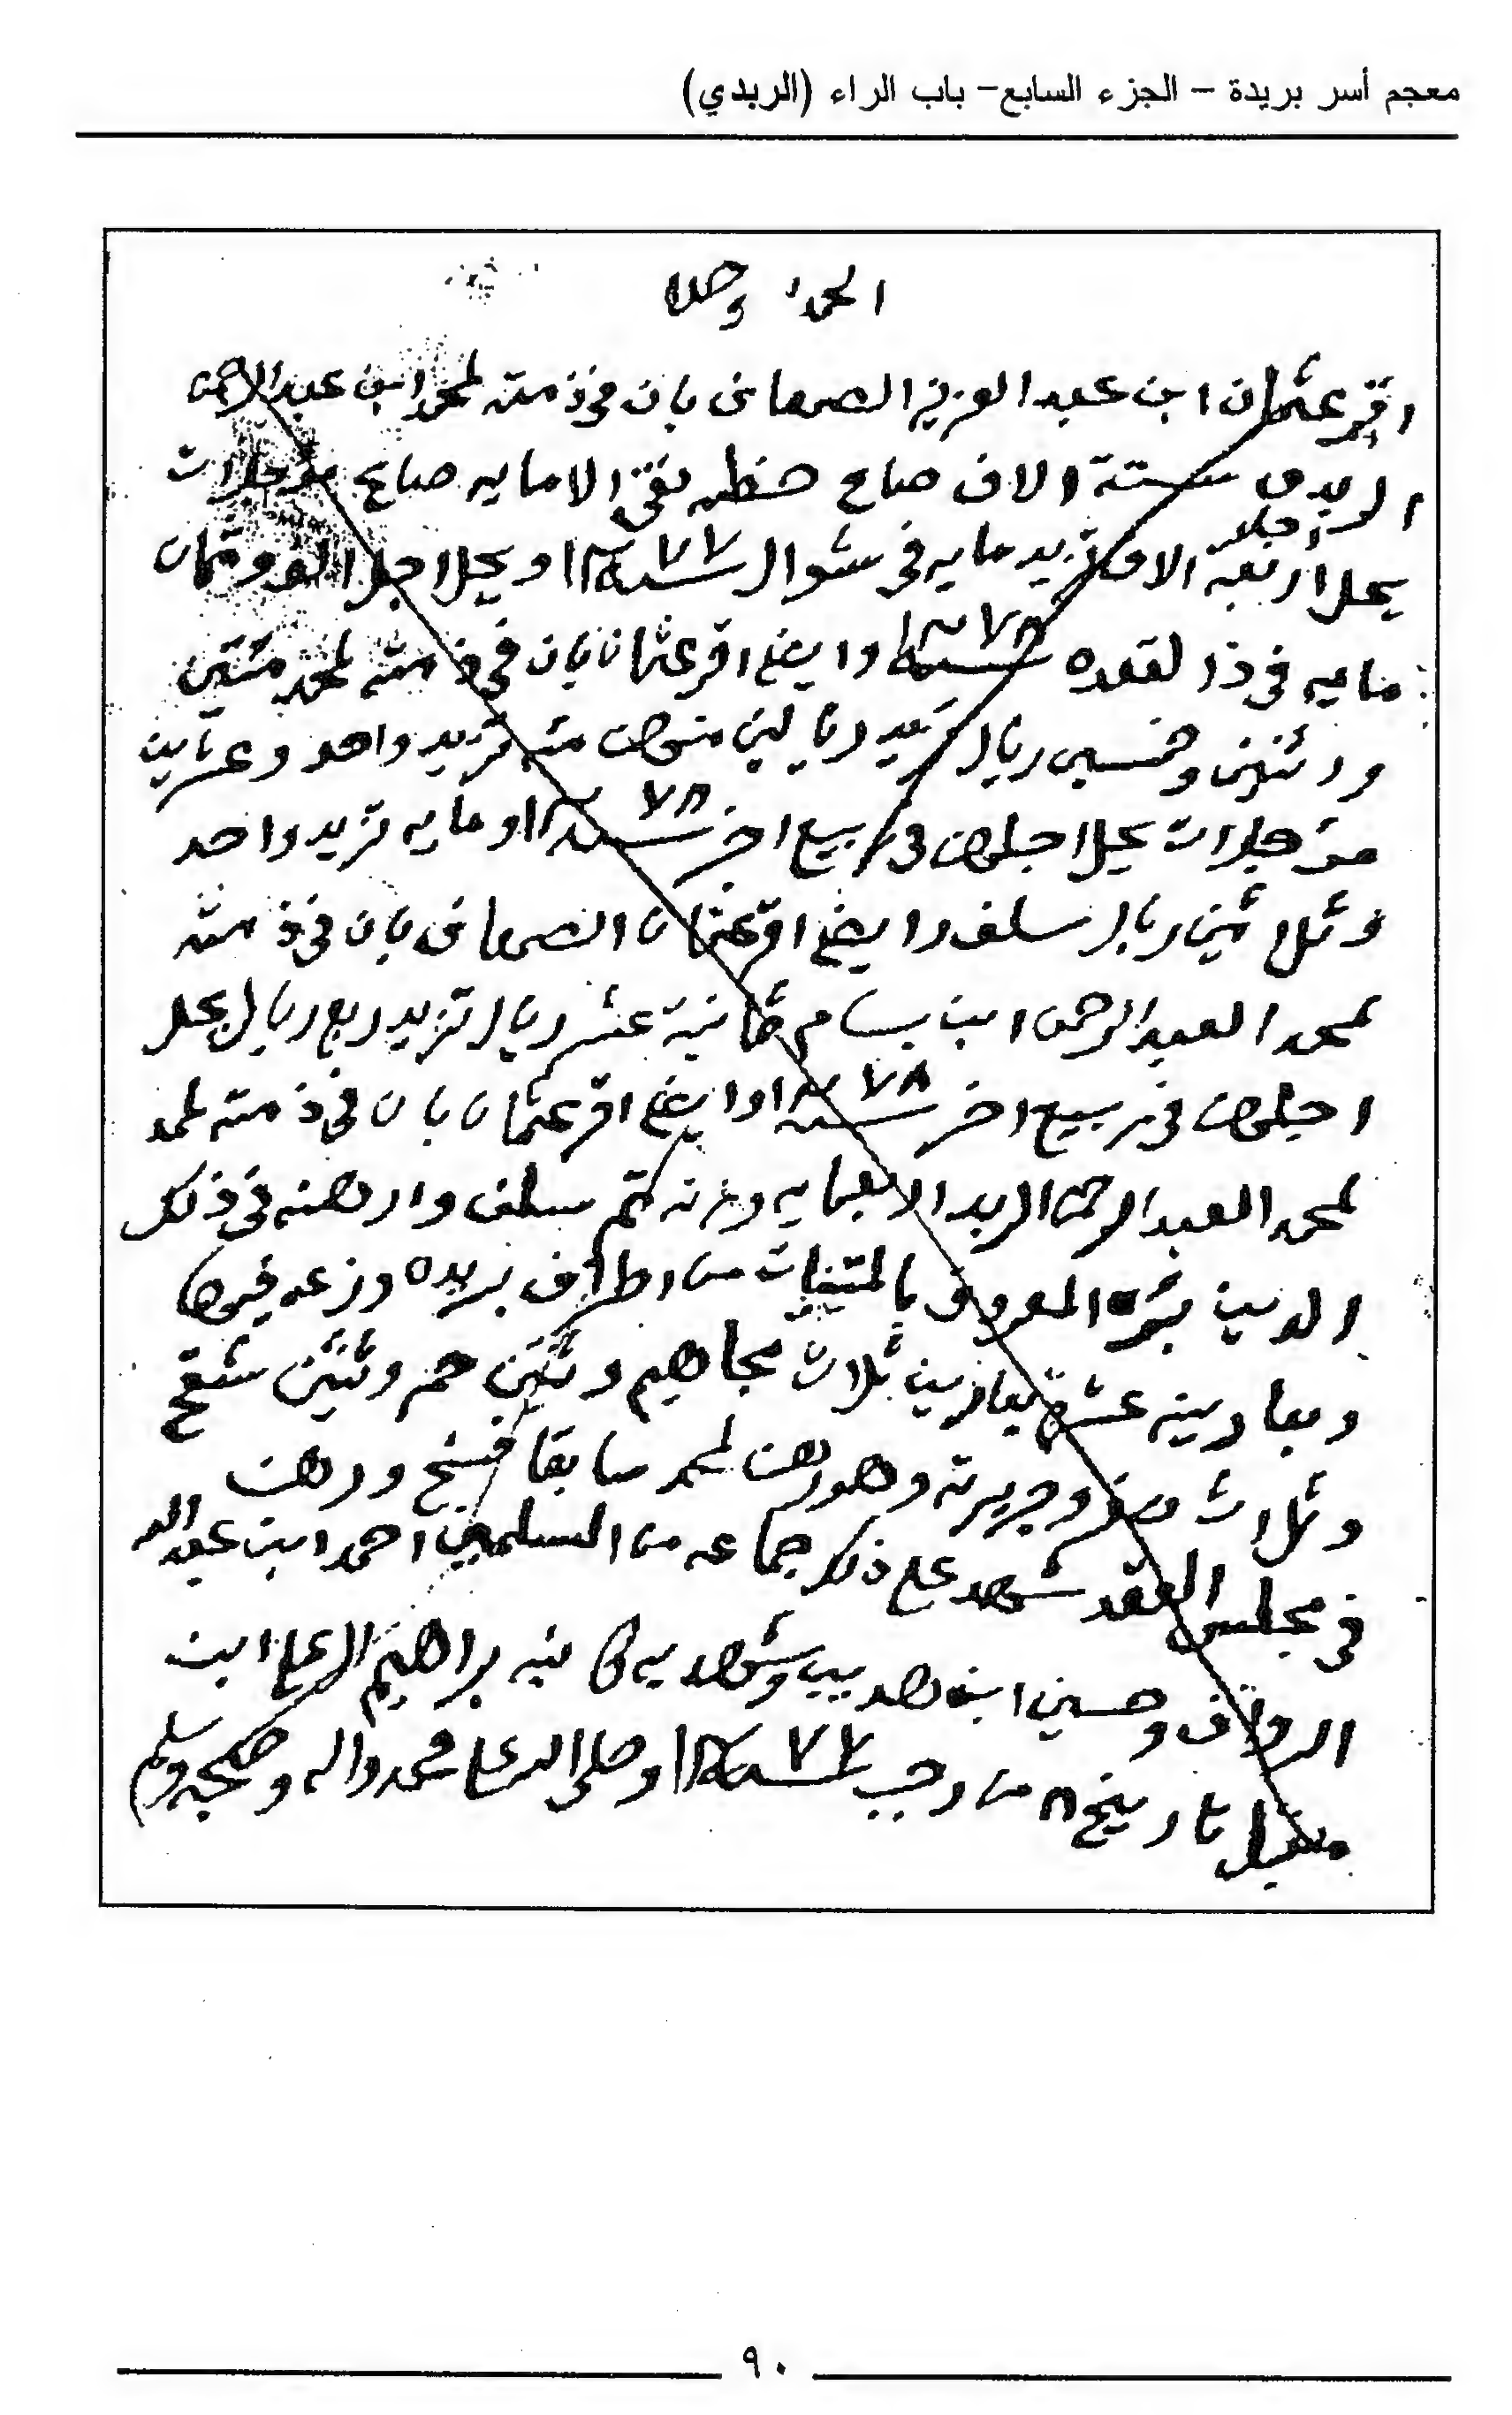 معجم أسر بريدة – الجزء السابع– باب الراء (الربدي)
الحمد وحده
اقر عثمان ابن عبد العزيز الصمعانى بان فى ذمته لمحمد ابن عبد الرحمن
الربدى ستة الاف صاع حنطه نقي الا مايه صاع مؤجلات
يحل أجل أربعة الاف تزيد مايه فى شوال سنة ١٢٧٧ او يحل اجل الف وثمان
مايه فى ذا لقعده سنة ١٢٧٨ وايضا اقر عثمان بان فى ذمته لمحمد مئتين
واثنين وخمسين ريال تزيد ريالين منهن مئه تزيد واحد وعشرين
مؤجلات يحل اجلهن فى ربيع اخر سنة ١٢٧٨ ومايه تزيد واحد
وثلاثين ريال سلف وايضا اقر عثمان الصمعانى بان فى ذمته
لمحمد العبد الرحمن ابن بسام ثمانية عشر ريال تزيد ربع ريال يحل
اجلهن فى ربيع اخر سنة ١٢٧٨ وايضا اقر عثمان بان فى ذمته لمحمد
لمحمد العبد الرحمن الربد اربعمايه وزنه تمر سلف وارهنه فى ذلك
الدين المعروف من اطراف بريده وزرعه فيها
وبعارينه عشرة بعارين ثلاث مجاهيم وثنتين حمر وثنتين شقح
وثلاث صفر وجريرته وهو رهن لمحمد سابقا فسخ ورهن
فى مجلس العقد شهد على ذلك جماعه من المسلمين احمد ابن عبدالله
الرواف وحسين ابن وشهد به كاتبه براهيم العلى ابن
مقبل تاريخ ٨ من رجب سنة ١٢٧٧ وصلى الله على محمد واله وصحبه وسلم
٩٠